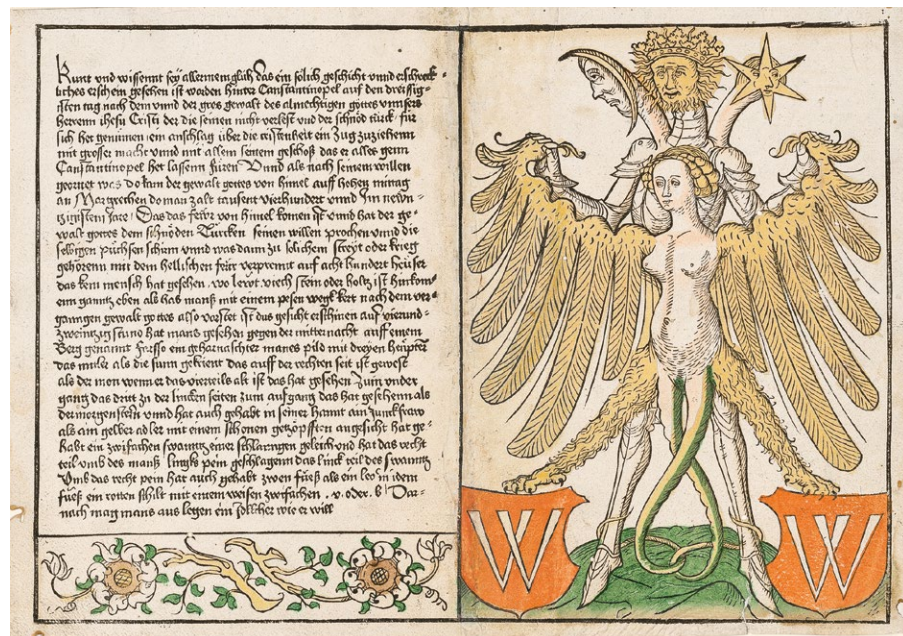 Kunt vnd wissennt sey allermeingklich Das ein solich geschicht vnnd erschreck⸗
liches erschein gesehen ist worden hinter Constantinopel auf den dreissig⸗
isten tag nach dem vnnd der gros gewalt des almechtigen gottes vnnsers
herrenn ihesu Cristi der die seinen nicht verlest vnd der schnöd türck für
sich het genumen ein anschlag über die cristenheit ein Zug zuziehenn
mit grosser macht vnnd mit allem seinem geschoß das er alles genn
Constantinopel het lassenn füren Vnnd als nach seinem willen
geornet was do kam der gewalt gottes von himel auff hohen mittag
an Margrethen do man zalt tausent vierhundert vnnd jm newn⸗
tzigistem jare Das das fewr von himel komen ist vnnd hat der ge⸗
walt gottes dem schnöden Turcken seinen willen prochen vnnd die
selbigen püchsen schirm vnnd was dann zu solichem streyt oder krieg
gehörenn mit dem hellischen fewr verprennt auf acht hundert heüser
das kein mensch hat gesehen wo lewt viech stein oder holtz ist hinkom⸗
enn ganntz eben als has mans mit einem pesen wegk kert nach dem ver⸗
ganngen gewalt gotes also vorstet ist das gesicht erschinen auf vierund⸗
zweintzig stund hat mans gesehen gegen der mitternacht auff einem
Berg genannt farsso ein geharnaschter manes pild mit dreyen heüpter
das mitler als die sunn gekrönt das auff der rechten seit ist gewest
als der mon wenn er das vierteils alt ist das hat gesehen Zum vnder
gang das drit zu der lincken seiten zum aufgang das hat gesehenn als
der morgenstern vnnd hat auch gehabt in seiner hannt ain junkfraw
als ain gelber adler mit einem schonen getzöpfften angesicht hat ge⸗
habt ein zwifachen swanntz einer schlanngen geleich vnd hat das recht
teil vmb des manß lingks pein geschlagenn das linck teil des swanntz
Vmb das recht pein hat auch gehabt zwen füeß als ein leo in idem
füeß ein rotten schilt mit einem weisen zwifachen . v . oder . b Dar⸗
nach mag mans aus legen ein solicher wie er will
W
W